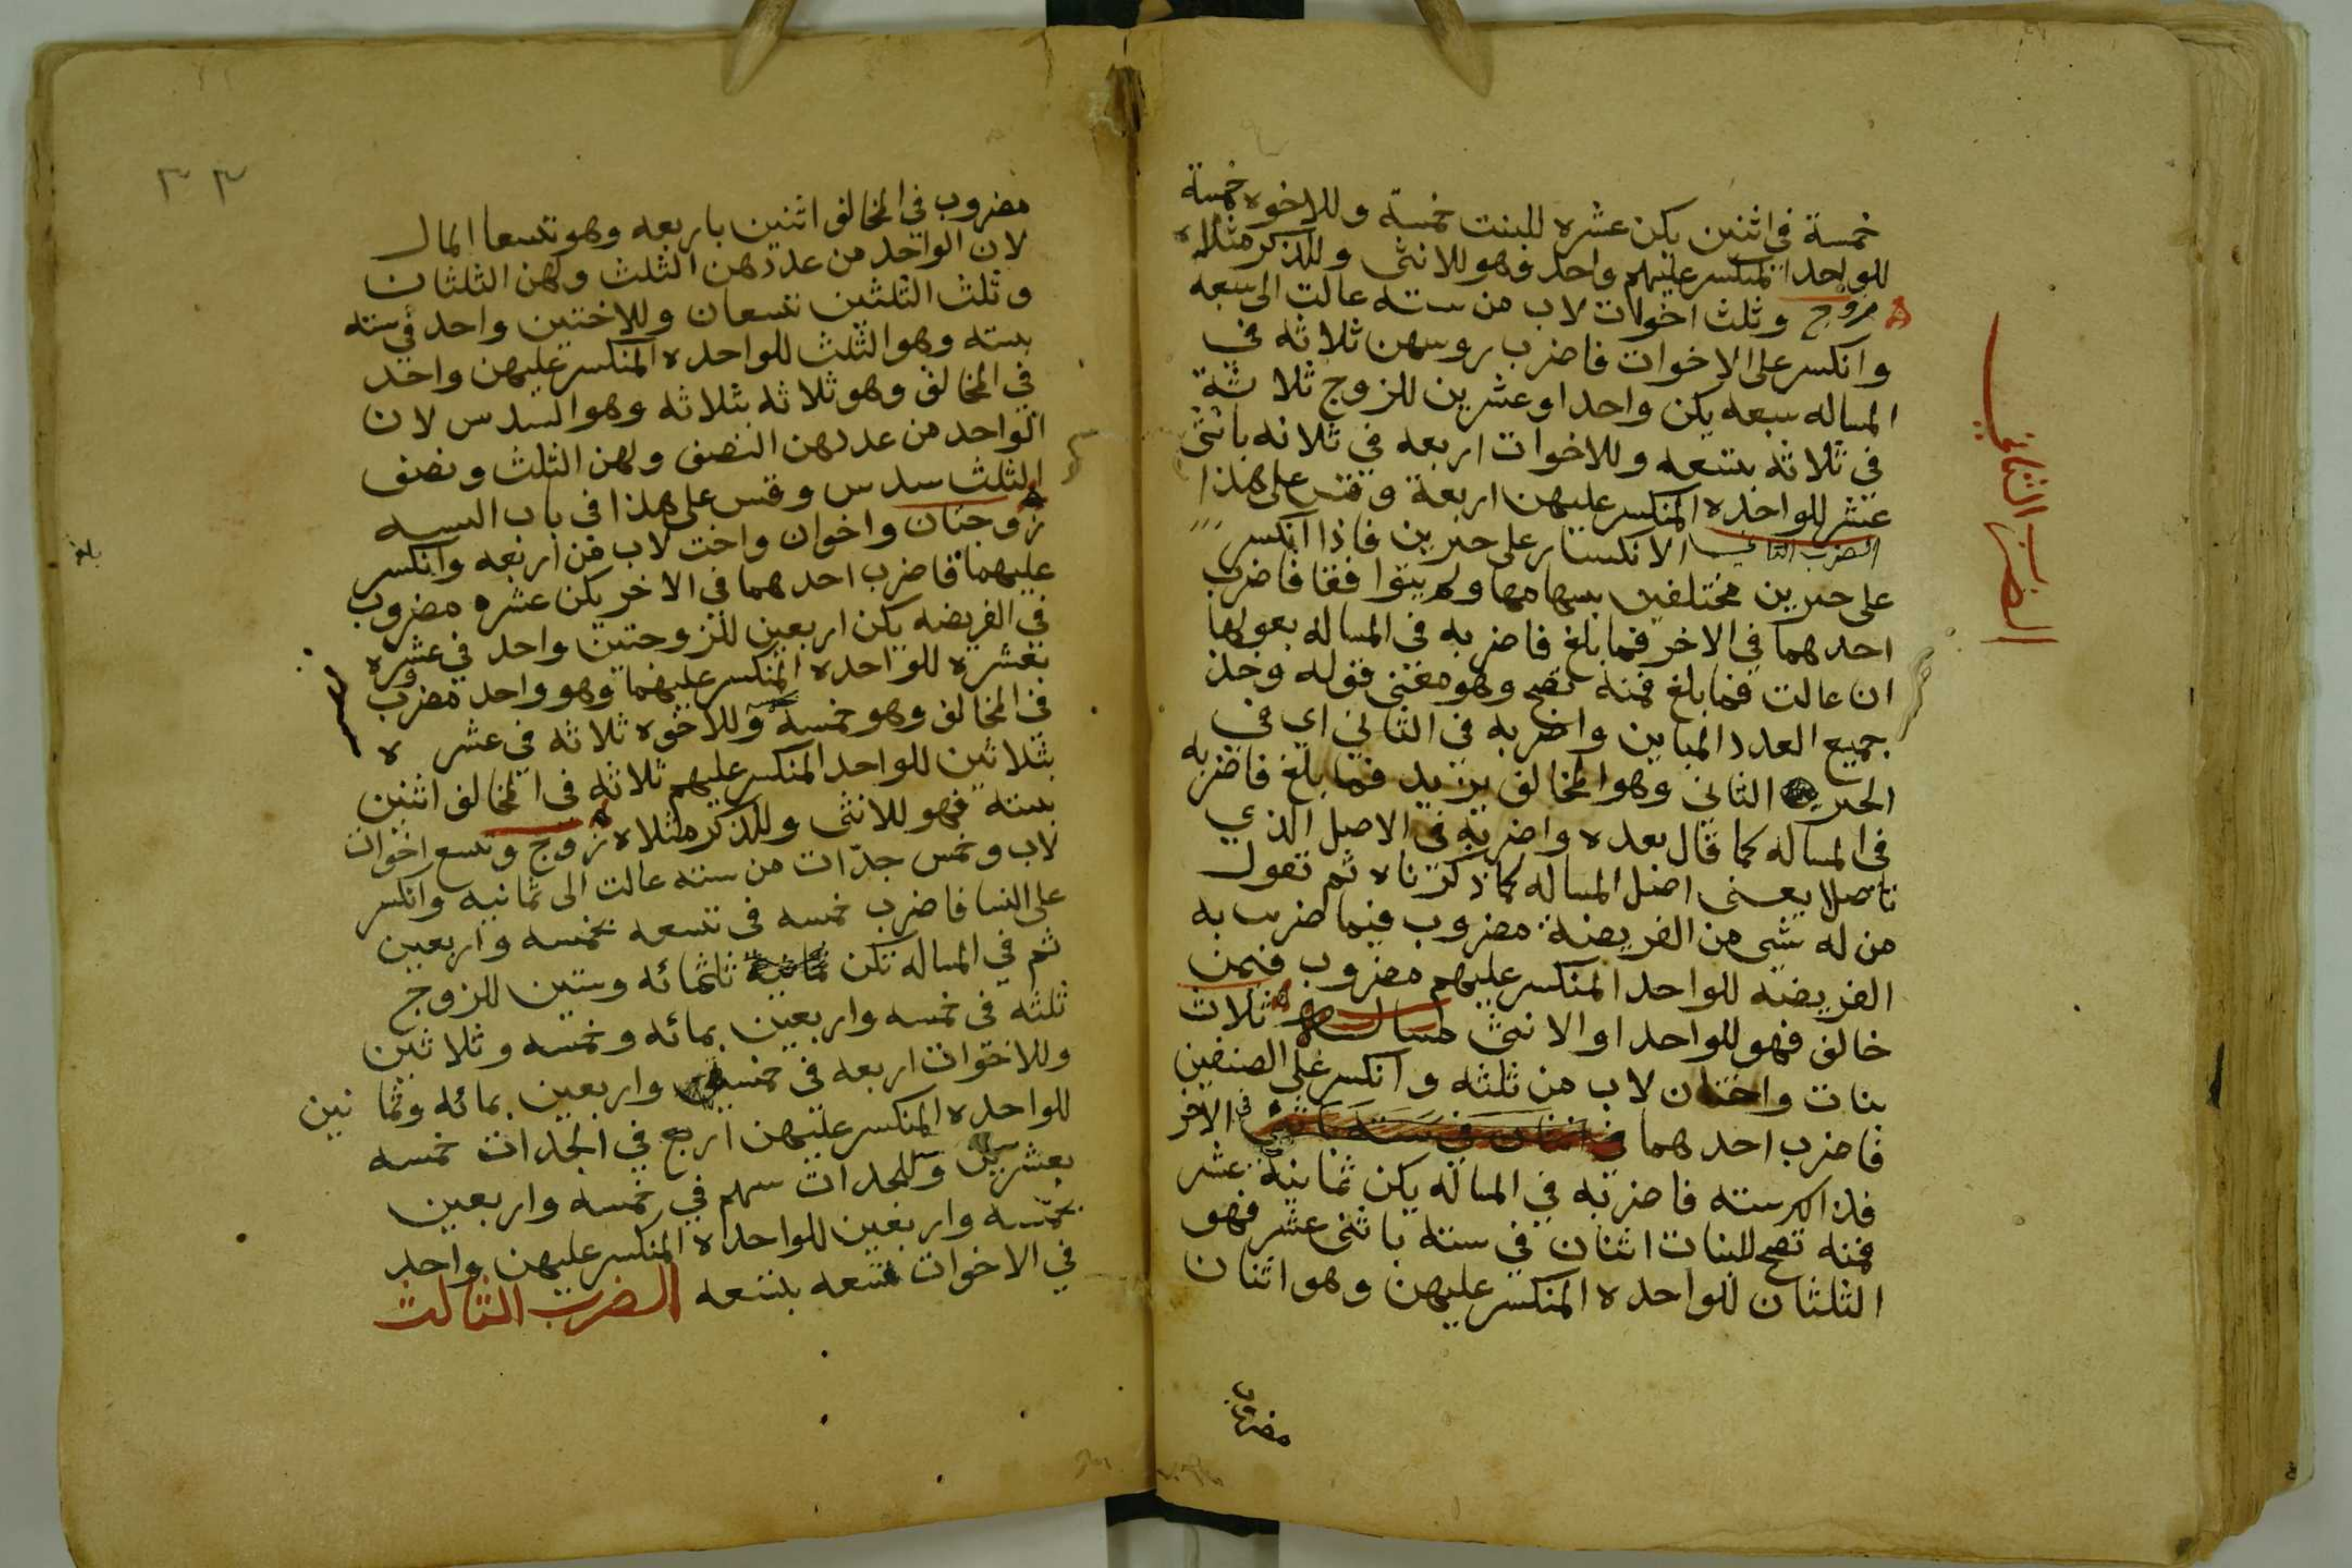 خمسة في اثنين يكن عشره للبنت خمسة وللاخوه خمسة
للواحد المنكسر عليهم واحد وهو للانثى وللذكر مثلاه
زوج وثلث اخوات لاب من سته عالت الى سبعه
وانكسر على الاخوات فاضرب روسهن ثلاثه في
المساله سبعه يكن واحدا وعشرين للزوج ثلاثة
في ثلاثه بتسعه وللاخوات اربعه في ثلاثه باثنى
عشر للواحده المنكسر عليهن اربعة وقس على هذا
الضرب الثاني الانكسار على حيزين فاذا انكسر
على حيزين مختلفين بسهامها ولم يتوافقا فاضرب
احدهما في الاخر فما بلغ فاضربه في المساله بعولها
ان عالت فما بلغ فمنه تصح وهو معنى قوله وخذ
جميع العدد المباين واضربه في الثاني اي في
الحيز الثاني وهو المخالف يزيد فما بلغ فاضربه
في المساله كما قال بعده واضربه في الاصل الذي
تاصلا يعنى اصل المساله كما ذكرناه ثم تقول
من له شي من الفريضة مضروب فيما ضرب به
الفريضه للواحد المنكسر عليهم مضروب فيمن
خالف فهو للواحد او الانثى ثلاث
بنات واختان لاب من ثلثه وانكسر على الصنفين
فاضرب احدهما في الاخر
فذالك سته فاضربه في المساله يكن ثمانية عشر
فمنه تصح للبنات اثنان في سته باثنى عشر فهو
الثلثان للواحده المنكسر عليهن وهو اثنان
مضروب
الضرب الثاني
٣٣
مضروب في المخالف اثنين باربعه وهو تسعا المال
لان الواحد من عددهن الثلث ولهن الثلثان
وثلث الثلثين تسعان وللاختين واحد في سته
بسته وهو الثلث للواحده المنكسر عليهن واحد
في المخالف وهو ثلاثه بثلاثه وهو السدس لان
الواحد من عددهن النصف ولهن الثلث ونصف
الثلث سدس وقس على هذا في باب النسبه
زوجتان واخوان واخت لاب من اربعه وانكسر
عليهما فاضرب احدهما في الاخر يكن عشره مضروب
في الفريضه يكن اربعين للزوجتين واحد في عشره
بعشره للواحده المنكسر عليهما وهو واحد مضروب
في المخالف وهو خمسة وللاخوه ثلاثه في عشره
بثلاثين للواحد المنكسر عليهم ثلاثه في المخالف اثنين
بسته فهو للانثى وللذكر مثلاه زوج وتسع اخوات
لاب وخمس جدّات من سته عالت الى ثمانيه وانكسر
على النسا فاضرب خمسه في تسعه بخمسه واربعين
ثم في المساله تكن ثلثمائه وستين للزوج
ثلثه في خمسه واربعين بمائه وخمسه وثلاثين
وللاخوات اربعه في خمسه واربعين بمائه وثمانين
للواحده المنكسر عليهن اربع في الجدات خمسه
بعشرين وللجدات سهم في خمسه واربعين
بخمسه واربعين للواحده المنكسر عليهن واحد
في الاخوات تسعه بتسعه الضرب الثالث
بلغ